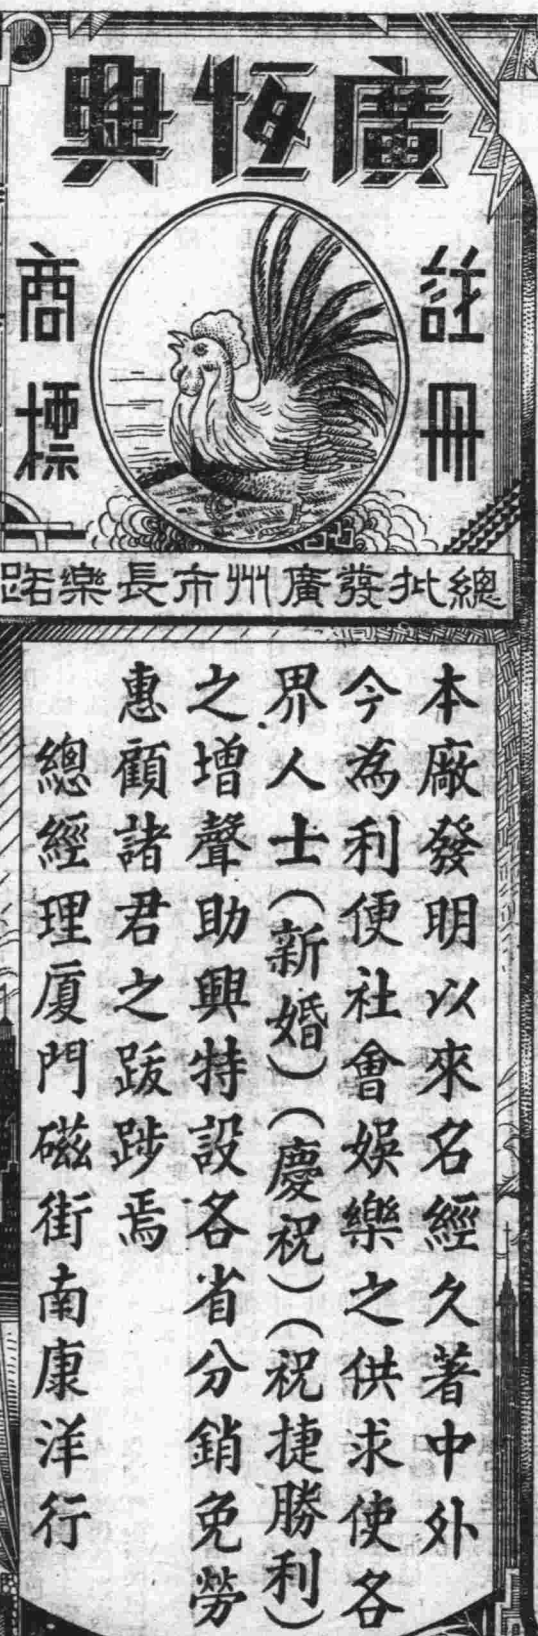 廣恆興
註冊
商標
總批發廣州市長樂路
本廠發明以來名經久著中外
今為利便社會娛樂之供求使各
界人士(新婚)(慶祝)(祝捷勝利)
之增聲助興特設各省分銷免勞
惠顧諸君之跋踄焉
總經理廈門磁街南康洋行